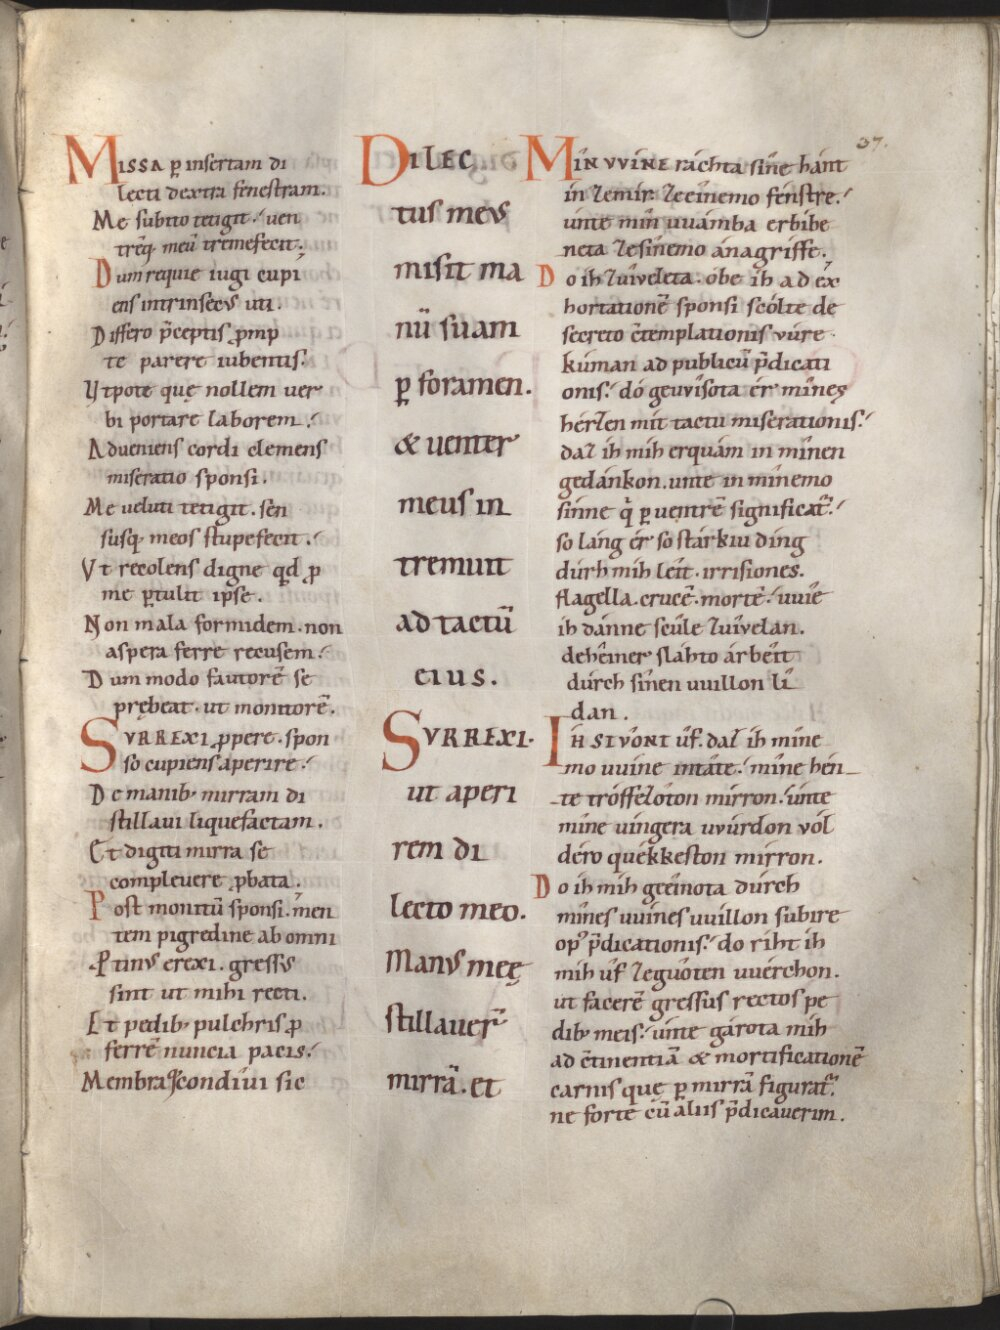 37.
MISSA ꝑ insertam di
lecti dextra fenestram.
Me subito tetigit. uen
trēq; meū tremefecit.
Dum requie iugi cupi
ens intrinsecus uti.
Differo p̄ceptis ꝓmp
te parere iubentis.
Vtpote quę nollem uer
bi portare laborem.
Adueniens cordi clemens
miseratio sponsi.
Me veluti tetigit. sen
susq; meos stupefecit.
Vt recolens digne qd ꝓ
me ꝑtulit ipse.
Non mala formidem. non
aspera ferre recusem.
Dum modo fautorē se
prębeat. ut monitorē.
SVRREXI ꝓpere. spon
so cupiens aperire.
De manib; mirram di
stillaui liquefactam.
Et digiti mirra se
compleuere ꝓbata.
Post monitū sponsi. men
tem pigredine ab omni
Ꝓtinus erexi. gressus
sint ut mihi recti.
Et pedib; pulchris ꝓ
ferrē nuncia pacis.
Membra condiui sic
DILEC
tus meus
misit ma
nū suam
ꝑ foramen.
& uenter
meus in
tremuit
ad tactū
eius.
SVRREXI.
ut aperi
rem di
lecto meo.
Manus meę
stillauer̄
mirrā. et
MIN VVINE ráchta sine hant
in zemir. ze einemo fenstre.
únte mín uuámba erbibe
neta ze sinemo ánagriffe.
Do ih zuiueleta. óbe ih ad ex
hortationē sponsi scólte de
secreto c̄templationis vure
kúman ad publicū p̄dicati
onis. dó geuuisota ér mines
hérzen mit tactu miserationis.
daz ih mih erquám in minen
gedánkon. unte in minemo
sinne q̄ ꝑ uentrē significat̄.
so láng ér so stárkiu ding
dúrh mih leit. irrisiones.
flagella. crucē. mortē. uuie
ih dánne scule zuiuelan.
dehêiner sláhto árbeit
dúrch sinen uuillon li
dan.
IH STVONT ûf. daz ih mine
mo uuine intâte. mine hén
te tróffeloton mirron. únte
mine uingera uuúrdon vól
déro quékkeston mirron.
Do ih mih gêinota dúrch
mines uuines uuillon subire
op; p̄dicationis. do riht ih
mih ûf ze guoten uuérchon.
ut facerē gressus rectos pe
dib; meis. únte gárota mih
ad c̄tinentiā & mortificationē
carnis quę ꝑ mirrā figurat̄.
ne forte cū aliis p̄dicauerim.